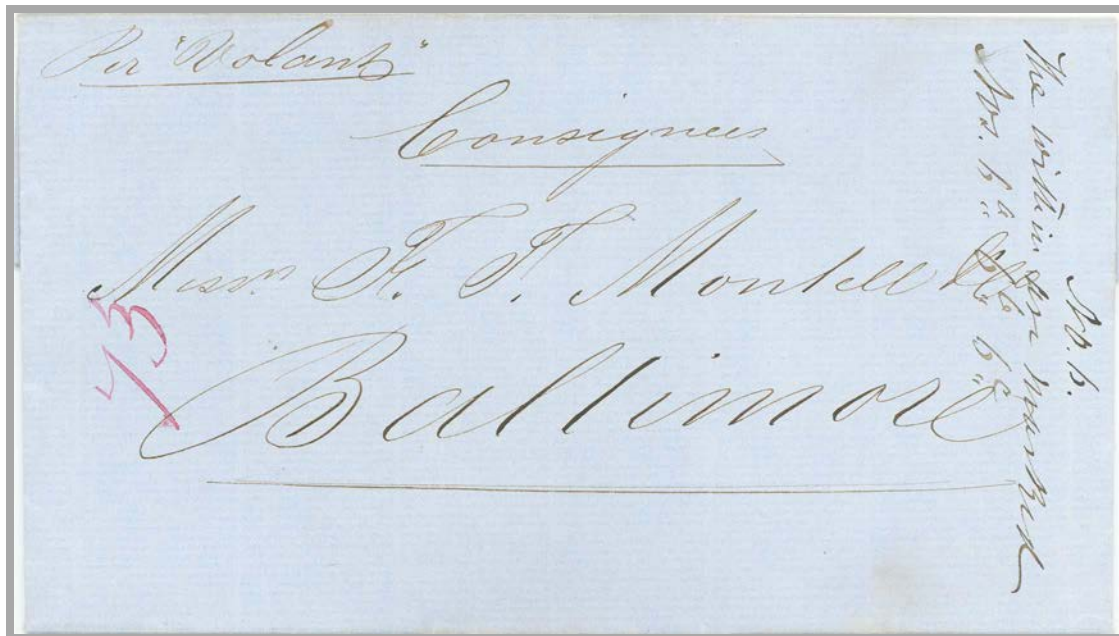 Per "Volant"
Consignees
Messrs. F. T. Montell & Co
Baltimore
73
No. 15.
The within are marked
Nos.